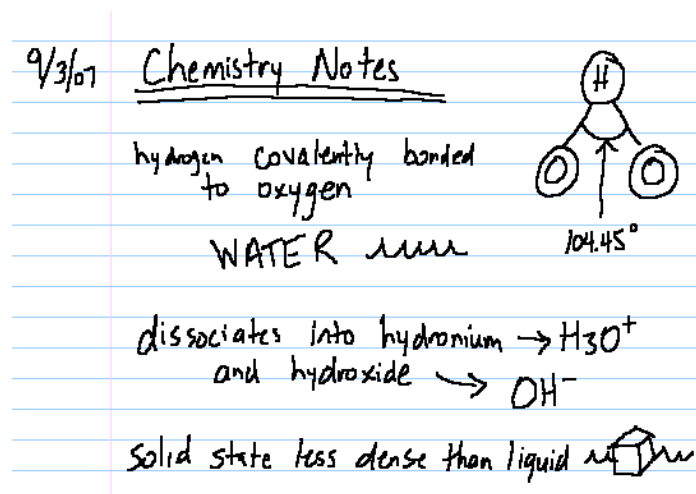 9/3/07 Chemistry Notes
H
hydrogen covalently bonded
to oxygen
O O
WATER
104.45°
dissociates into hydronium → H3O+
and hydroxide → OH-
solid state less dense than liquid